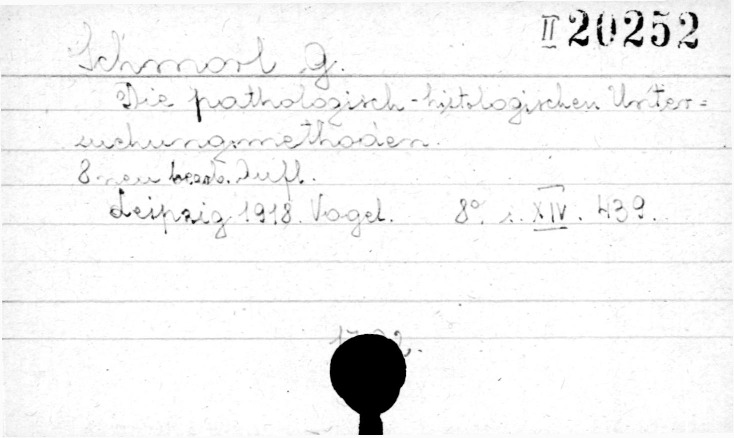 II 20252
Schmorl G.
Die pathologisch-histologischen Unter=
suchungsmethoden.
8 neu bearb. Aufl.
Leipzig 1918. Vogel. 8° s. XIV. 439.